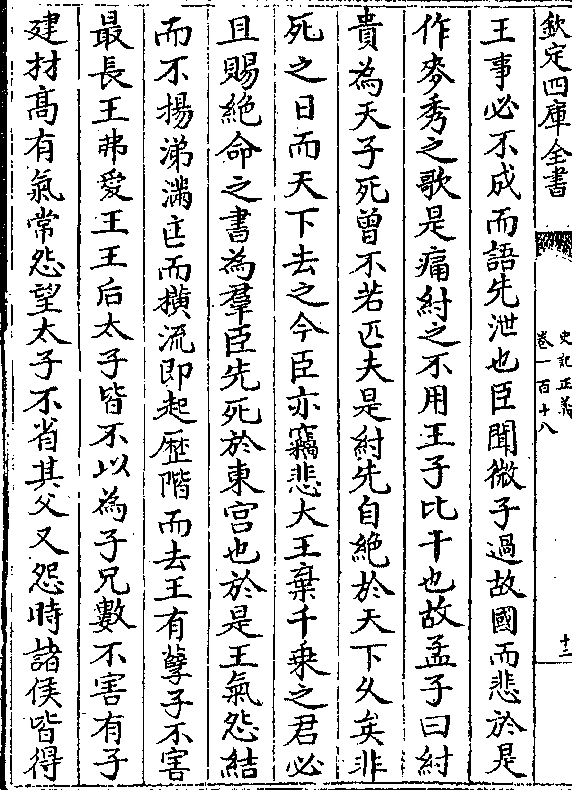 欽定四庫全書
史記正義
卷一百十八
十三
王事必不成而語先泄也臣聞微子過故國而悲於是
作麥秀之歌是痛紂之不用王子比干也故孟子曰紂
貴為天子死曾不若匹夫是紂先自絶於天下久矣非
死之日而天下去之今臣亦竊悲大王棄千乗之君必
且賜絶命之書為羣臣先死於東宫也於是王氣怨結
而不揚涕滿匡而横流即起歴階而去王有孽子不害
最長王弗愛王王后太子皆不以為子兄數不害有子
建材髙有氣常怨望太子不省其父又怨時諸侯皆得